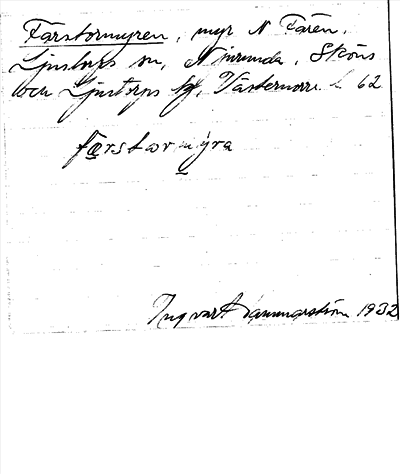 Färstormyren, myr N Fären,
Ljustorps sn, N inrunda, Sköns
och Ljustorps tg, Västernorrl. l 62
færstormyra
Ingvart Hammarström 1932